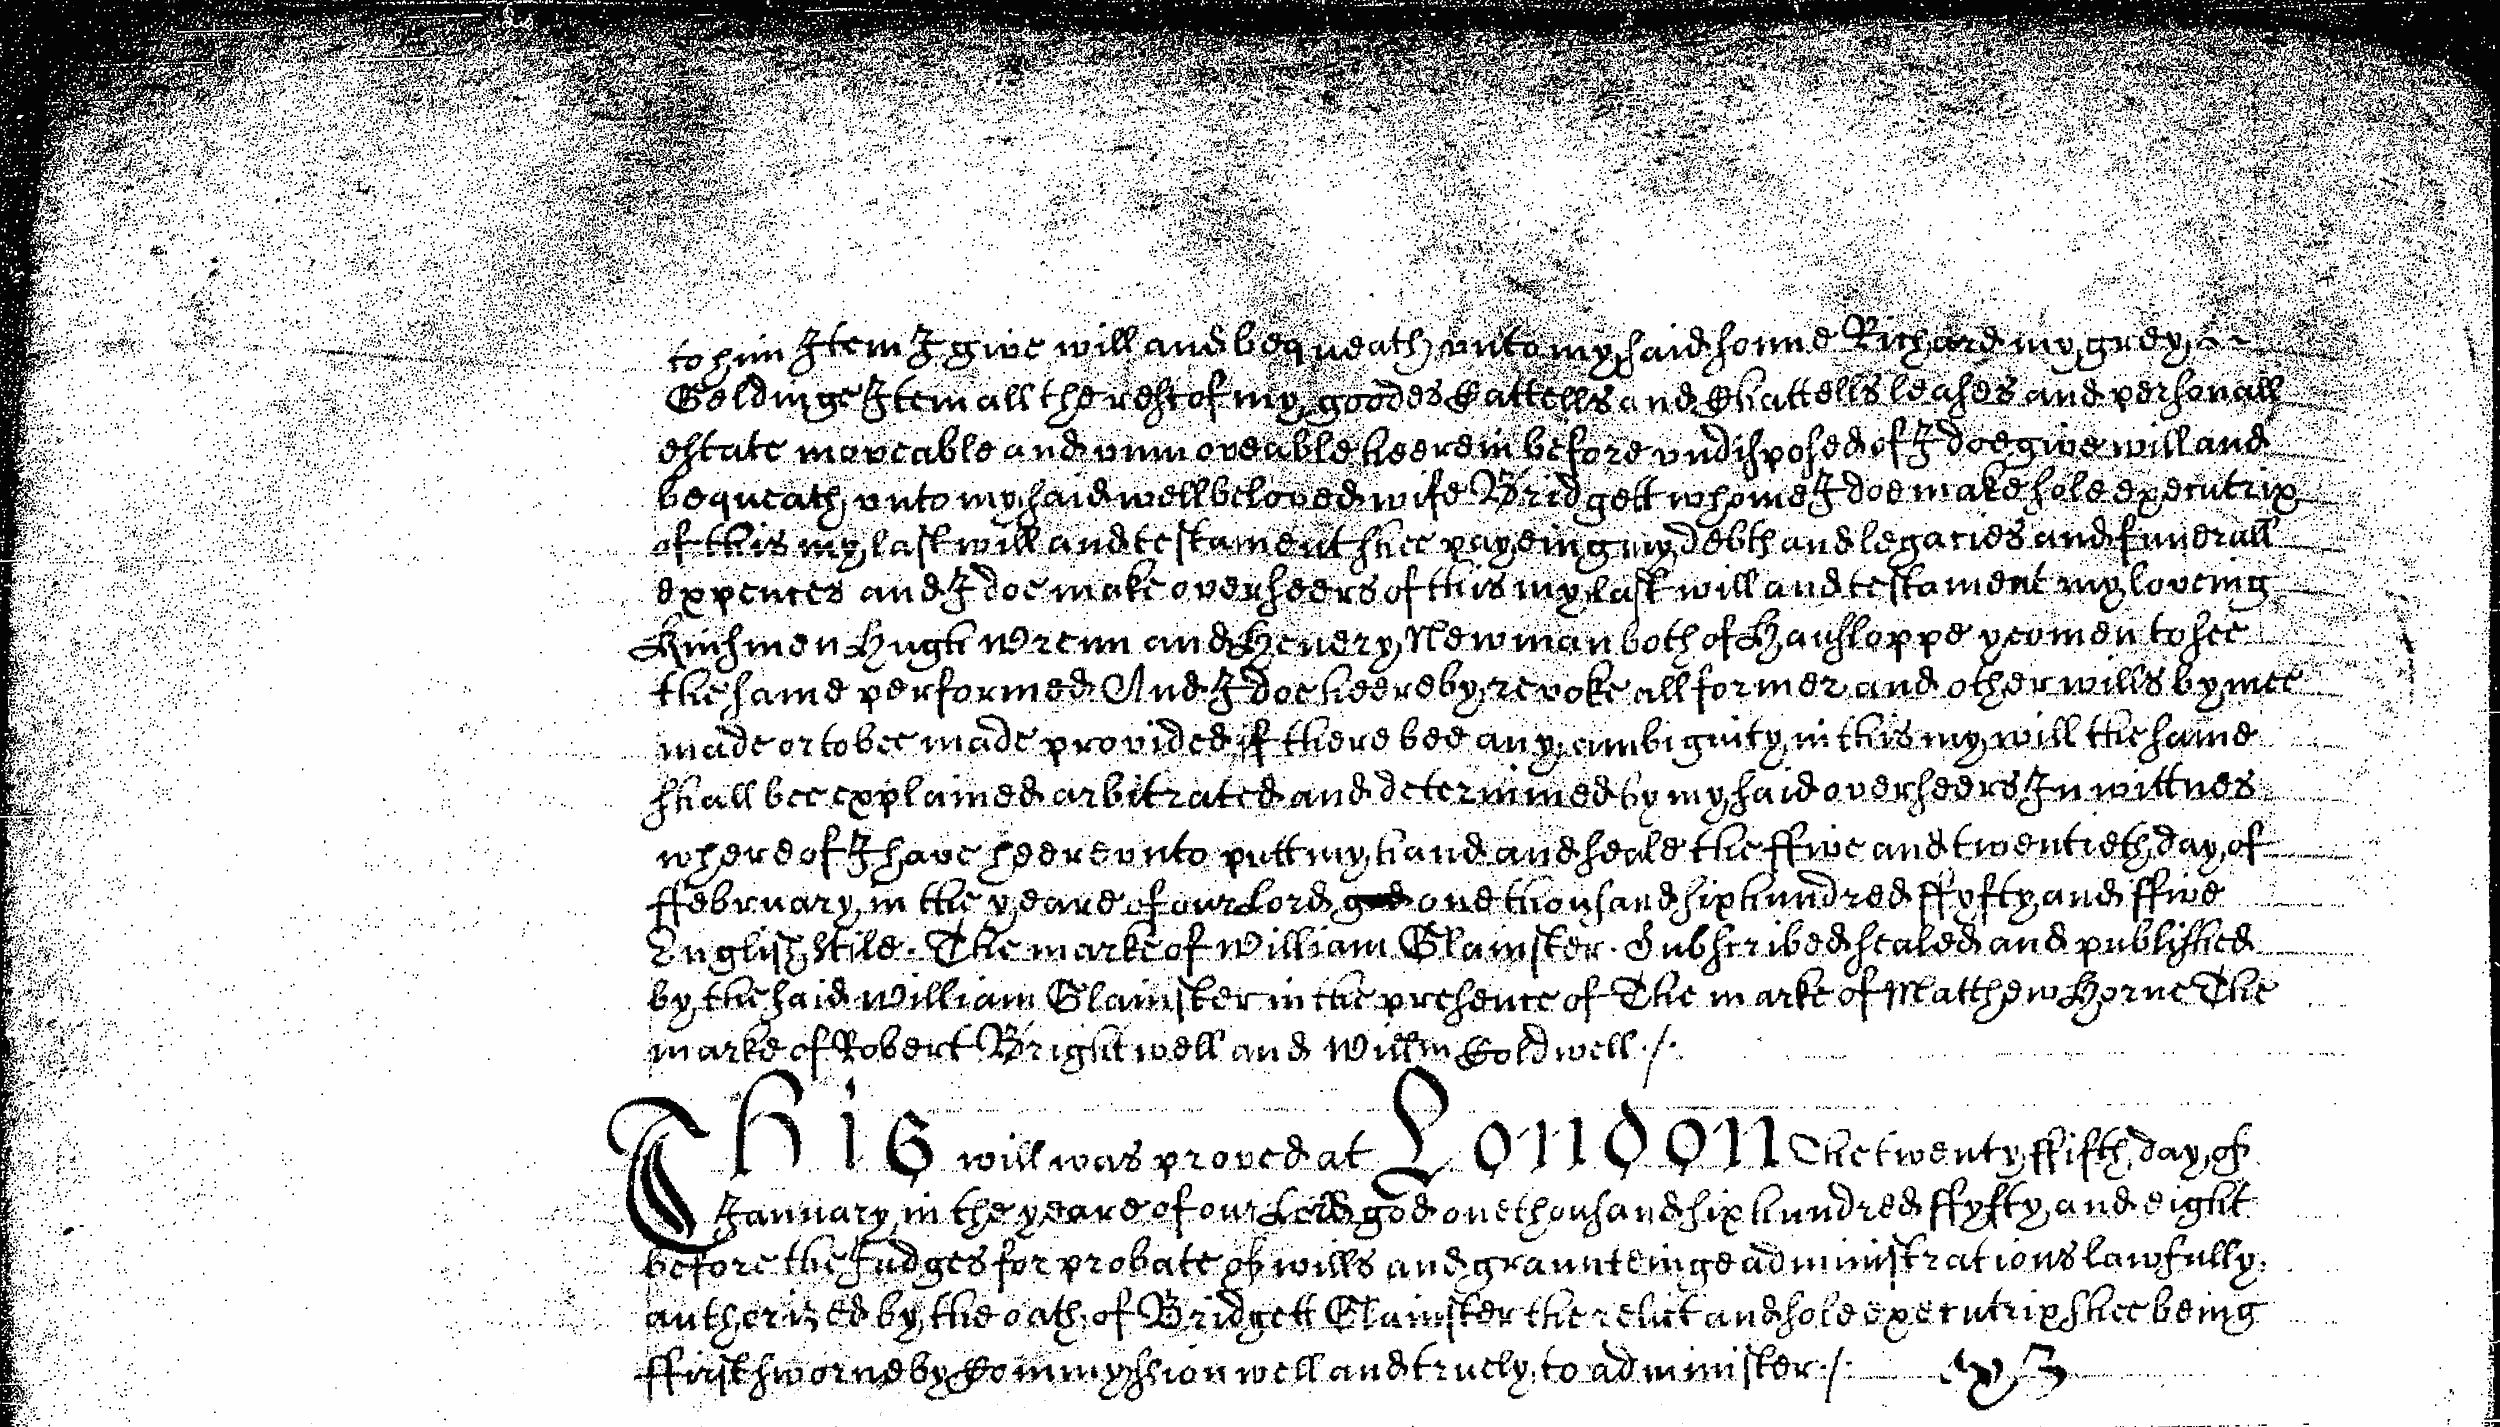 to him Item I give will and bequeath unto my said sonne Richard my grey
Geldinge Item all the rest of my goodes Cattells and Chattells leases and personall
estate moveable and unmoveable heerein before undisposed of I doe give will and
bequeath unto my said wellbeloved wife Bridgett whome I doe make sole executrix
of this my last will and testament shee payeing my debth and legacies and funerall
expences and I doe make overseers of this my last will and testament my loveing
Kinsmen Hugh Wrenn and Henery Newman both of Hansloppe yeomen to see
the same performed And I doe heereby revoke all former and other wills by mee
made or to bee made provided if there bee any ambiguity in this my will the same
shall bee explained arbitrated and determined by my said overseers In wittnes
whereof I have heereunto putt my hand and seale the ffive and twentieth day of
ffebruary in the yeare of our Lord one thousand six hundred ffyfty and ffive
English stile. The marke of William Glainster. Subscribed sealed and published
by the said William Glainster in the presence of The marke of Matthew Horne The
marke of Robert Brightwell and Willm Coldwell ./.
This will was proved at London The twenty ffifth day of
January in the yeare of our Lord god one thousand six hundred ffyfty and eight
before the Judges for probate of wills and graunteinge administrations lawfully
authorized by the oath of Bridgett Glainster the relict and sole executrix shee being
ffirst sworne by Commyssion well and truely to administer ./.